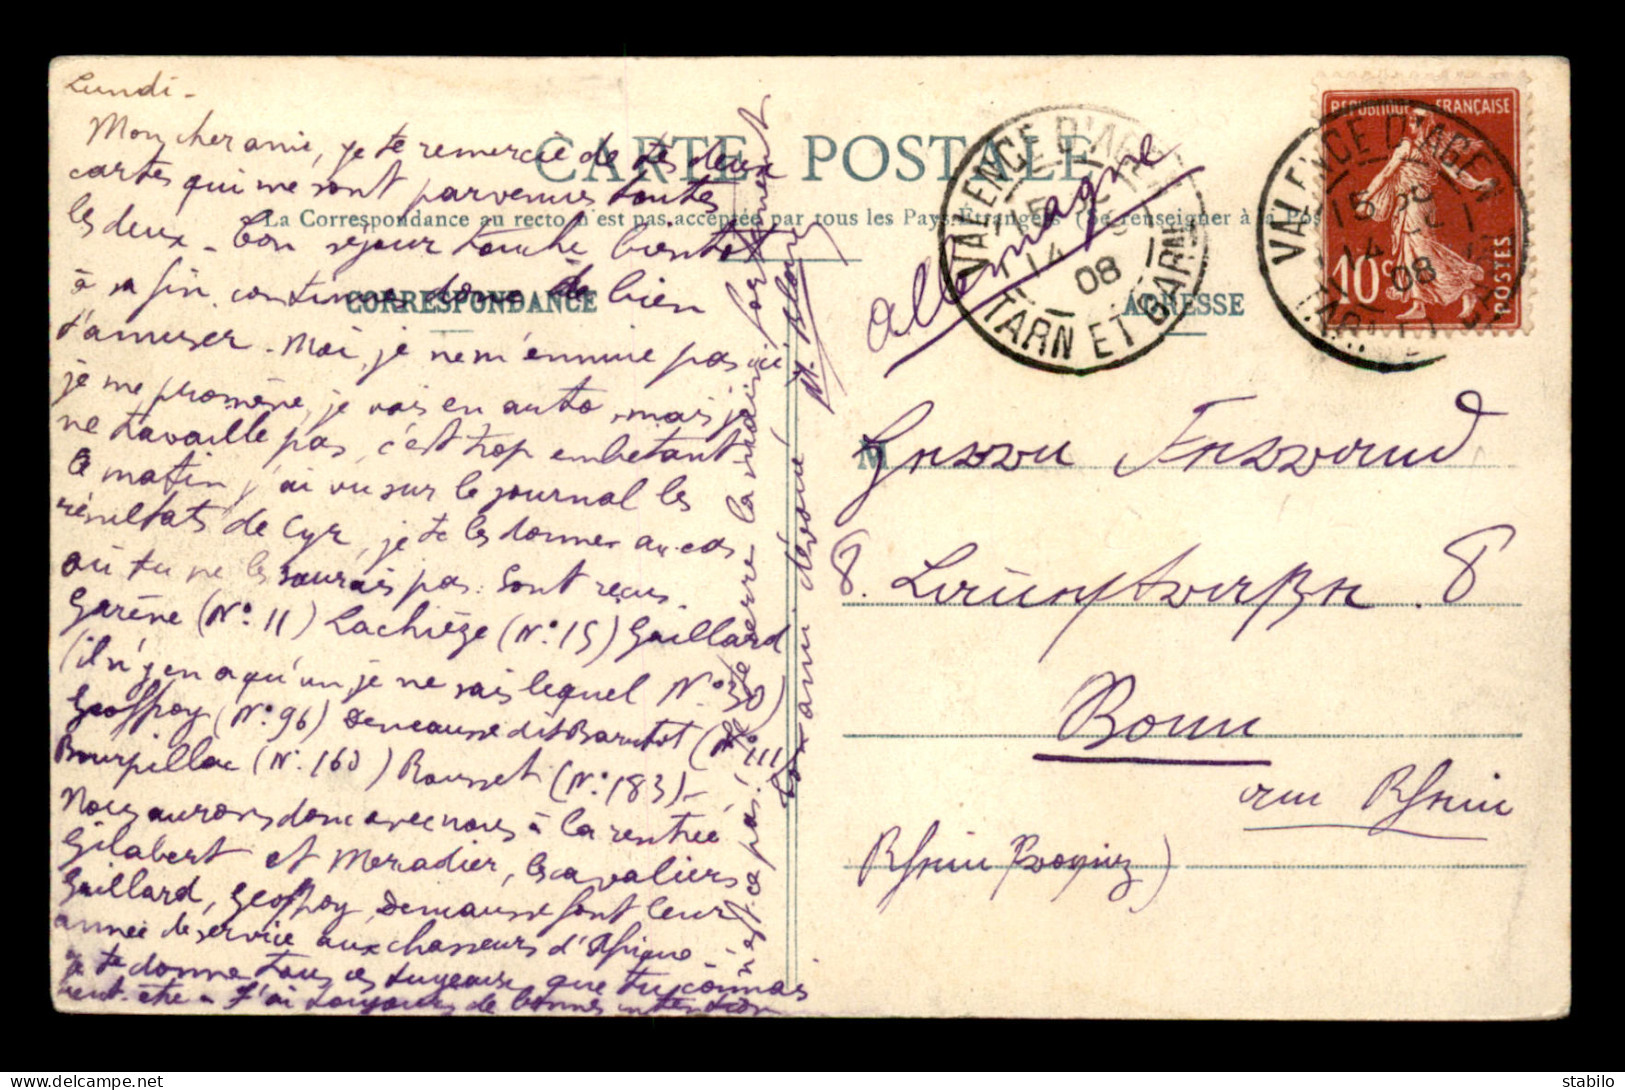 Lundi -
Mon cher ami, je te remercie de tes deux
cartes qui me sont parvenues toutes
les deux - Ton séjour touche bientôt
à sa fin, continues donc de bien
t'amuser - Moi, je ne m'ennuie pas ici
je me promène, je vais en auto, mais je
ne travaille pas, c'est trop embêtant
Ce matin, j'ai vu sur le journal les
résultats de Cyr, je te les donne au cas
où tu ne les saurais pas. Sont reçus
Garène (N° 11) Lachièze (N° 15) Gaillard
(il n'y en a qu'un je ne sais lequel N° 30)
Geoffroy (N° 96) Demausse dit (N° 111)
Bourpillac (N° 160) Rousset (N° 183) -
Nous aurons donc avec nous à la rentrée
Gilabert et Meradier, les cavaliers
Gaillard, Geoffroy, Demausse font leur
année de service aux chasseurs d'Afrique -
Je te donne tous ces tuyaux que tu connais
peut-être - J'ai toujours de bonnes intention
n'est-ce pas! Je te serre la main fortement
Ton ami dévoué
CARTE POSTALE
La Correspondance au recto n'est pas acceptée par tous les Pays Étrangers (Se renseigner à la Pos
CORRESPONDANCE
ADRESSE
Allemagne
VALENCE D'AGEN
15
14 08
TARN ET GARNE
RÉPUBLIQUE FRANÇAISE
10c
POSTES
VALENCE D'AGEN
15 30
14 08
M
8. 8
Bonn
am Rhein
Rhein Provinz)
stabilo